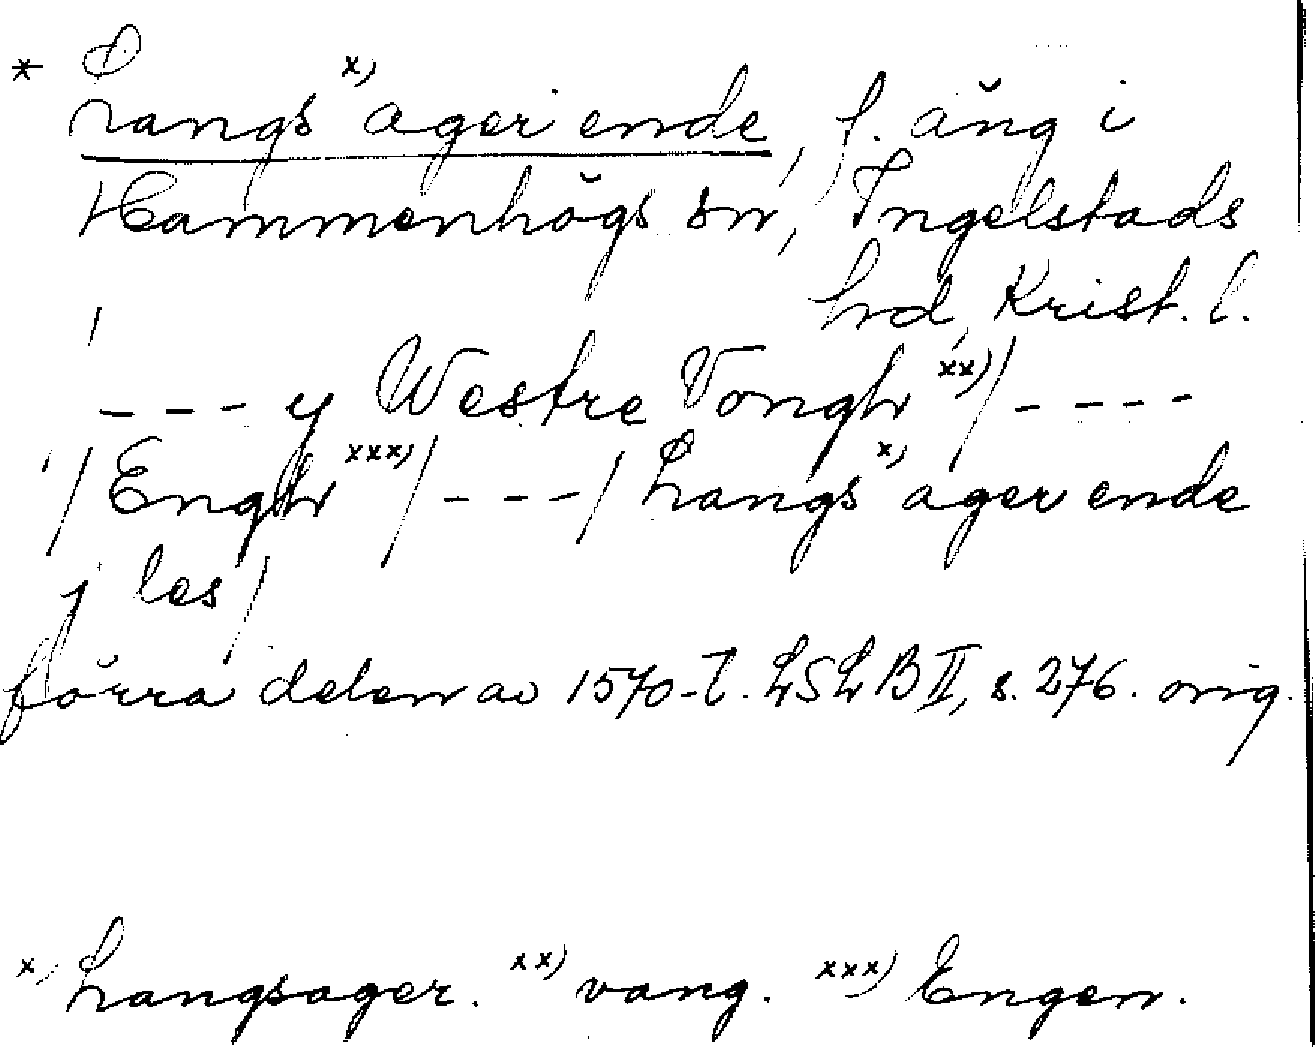 * Langs x) ager ende, f. äng i
Hammenhögs sn, Ingelstads
hd, Krist. l.
- - - y Westre Vongh xx) / - - - -
/ Engh xxx) / - - - / Langs x) ager ende
j les /
förra delen av 1570-t. LSLB II, s. 276. orig.
x) Langsager. xx) vang. xxx) Engen.